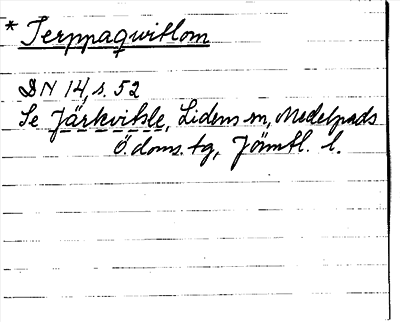 * Jerppaqwitlom
DN 14, s. 52
Se Järkvitsle, Lidens sn, Medelpads
Ö. doms. tg, Jämtl. l.